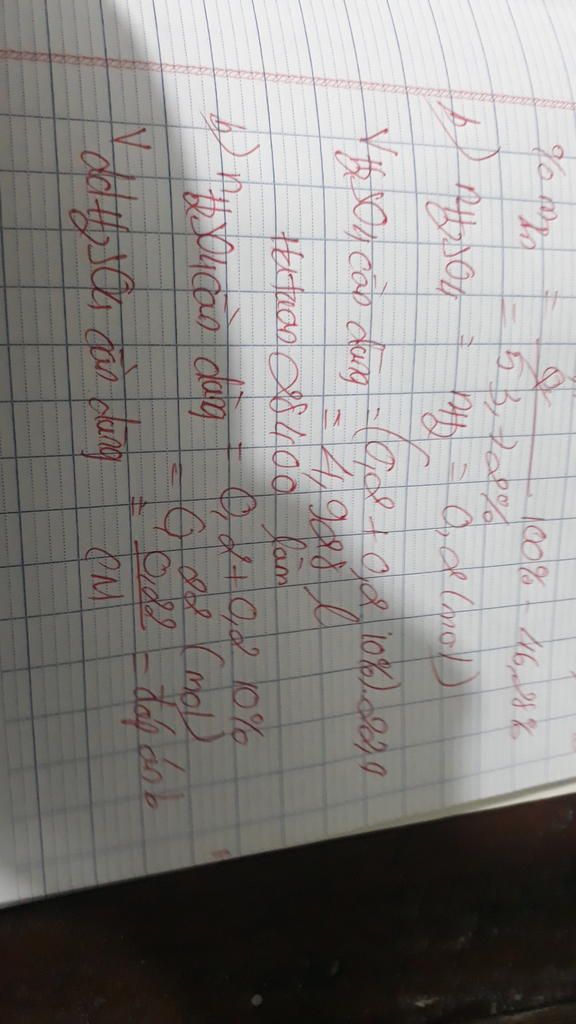 %m = 100% - 46,28%
= 53,72%
b) nH2SO4 = nH2 = 0,2 (mol)
VH2SO4 cần dùng = (0,2 + 0,2 10%). 22,4
= 4,928 l
b) nH2SO4 cần dùng = 0,2 + 0,2 10%
= 0,22 (mol)
V ddH2SO4 cần dùng = 0,22 / CM = đáp án b